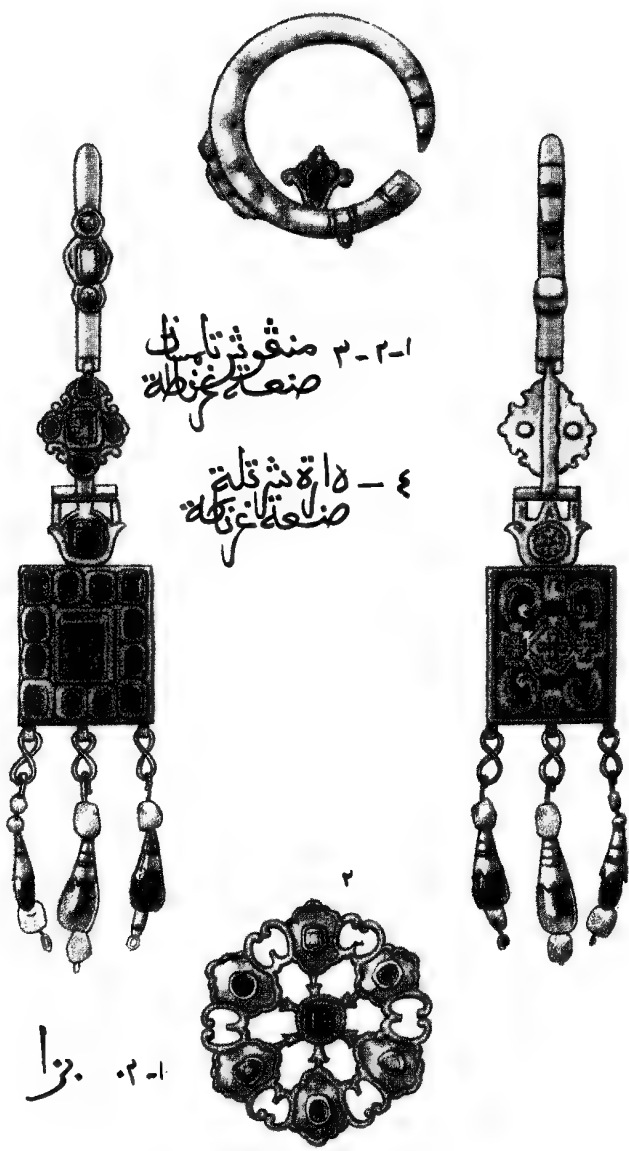 ١-٢-٣ منڨوش تلمسان
صنعة غرناطة
٤ - دارة شرتلة
صنعة غرناطة
٢
١-٣.